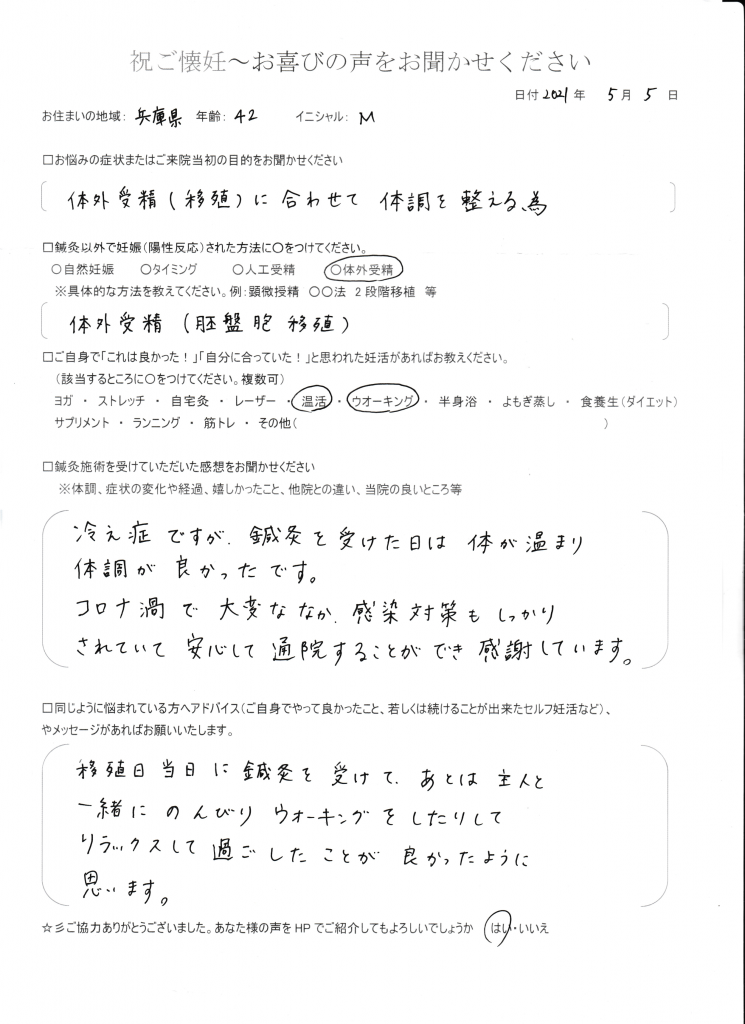 祝ご懐妊～お喜びの声をお聞かせください
日付 2021 年 5 月 5 日
お住まいの地域: 兵庫県 年齢: 42 イニシャル: M
□お悩みの症状またはご来院当初の目的をお聞かせください
体外受精(移殖)に合わせて 体調を整える為
□鍼灸以外で妊娠(陽性反応)された方法に○をつけてください。
○自然妊娠 ○タイミング ○人工受精 ○体外受精
※具体的な方法を教えてください。例:顕微授精 ○○法 2段階移植 等
体外受精 (胚盤胞 移殖)
□ご自身で「これは良かった!」「自分に合っていた!」と思われた妊活があればお教えください。
(該当するところに○をつけてください。複数可)
ヨガ ・ ストレッチ ・ 自宅灸 ・ レーザー ・ 温活 ・ ウオーキング ・ 半身浴 ・ よもぎ蒸し ・ 食養生(ダイエット)
サプリメント ・ ランニング ・ 筋トレ ・ その他( )
□鍼灸施術を受けていただいた感想をお聞かせください
※体調、症状の変化や経過、嬉しかったこと、他院との違い、当院の良いところ等
冷え症ですが、鍼灸を受けた日は体が温まり
体調が良かったです。
コロナ渦で大変ななか、感染対策もしっかり
されていて安心して通院することができ感謝しています。
□同じように悩まれている方へアドバイス(ご自身でやって良かったこと、若しくは続けることが出来たセルフ妊活など)、
やメッセージがあればお願いいたします。
移殖日当日に鍼灸を受けて、あとは主人と
一緒にのんびりウォーキングをしたりして
リラックスして過ごしたことが良かったように
思います。
☆彡ご協力ありがとうございました。あなた様の声をHPでご紹介してもよろしいでしょうか はい・いいえ